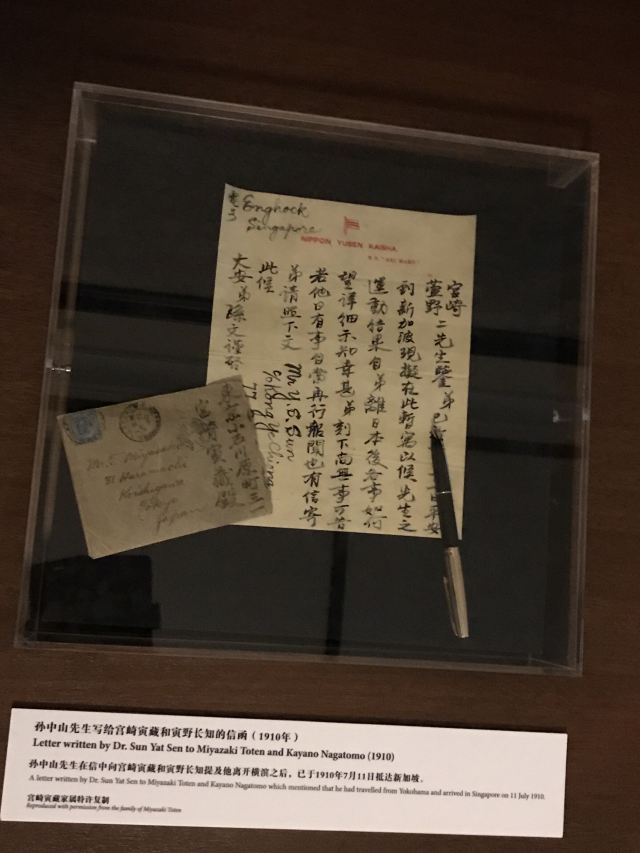 Enghock
Singapore
NIPPON YUSEN KAISHA.
宮崎
萱野 二先生鑒 弟已
到新加波現擬在此暫寓以候先生之
運動結果自弟離日本後各事如何
望詳細示知幸甚弟刻下尚無事可告
若他日有事自當再行報聞也有信寄
弟請照下文
Mr Y. S. Sun
此候
大安 弟孫文謹啓
東京小石川原町三一
宮崎寅藏殿
Mr. T. Miyazaki
31 Haramachi
Koishikawa
Tokyo
Japan
孙中山先生写给宫崎寅藏和寅野长知的信函（1910年）
Letter written by Dr. Sun Yat Sen to Miyazaki Toten and Kayano Nagatomo (1910)
孙中山先生在信中向宫崎寅藏和寅野长知提及他离开横滨之后，已于1910年7月11日抵达新加坡。
A letter written by Dr. Sun Yat Sen to Miyazaki Toten and Kayano Nagatomo which mentioned that he had travelled from Yokohama and arrived in Singapore on 11 July 1910.
宫崎寅藏家属特许复制
Reproduced with permission from the family of Miyazaki Toten